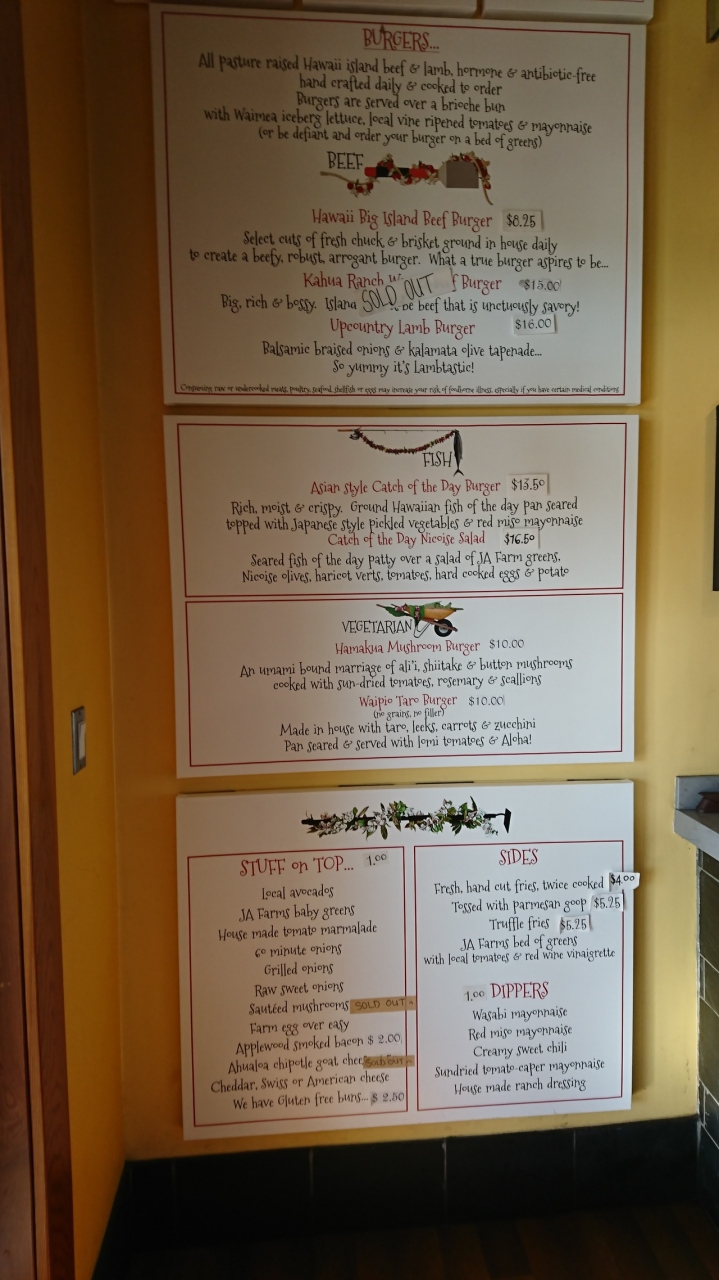 BURGERS...
All pasture raised Hawaii island beef & lamb, hormone & antibiotic-free
hand crafted daily & cooked to order
Burgers are served over a brioche bun
with Waimea iceberg lettuce, local vine ripened tomatoes & mayonnaise
(or be defiant and order your burger on a bed of greens)
BEEF
Hawaii Big Island Beef Burger $8.25
Select cuts of fresh chuck & brisket ground in house daily
to create a beefy, robust, arrogant burger. What a true burger aspires to be...
Kahua Ranch Burger $15.00
SOLD OUT
Big, rich & bossy. beef that is unctuously savory!
Upcountry Lamb Burger $16.00
Balsamic braised onions & kalamata olive tapenade...
So yummy it's Lambtastic!
Consuming raw or undercooked meats, poultry, seafood, shellfish or eggs may increase your risk of foodborne illness, especially if you have certain medical conditions
FISH
Asian style Catch of the Day Burger $13.50
Rich, moist & crispy. Ground Hawaiian fish of the day pan seared
topped with Japanese style pickled vegetables & red miso mayonnaise
Catch of the Day Nicoise Salad $16.50
Seared fish of the day patty over a salad of JA Farm greens,
Nicoise olives, haricot verts, tomatoes, hard cooked eggs & potato
VEGETARIAN
Hamakua Mushroom Burger $10.00
An umami bound marriage of ali'i, shiitake & button mushrooms
cooked with sun-dried tomatoes, rosemary & scallions
Waipio Taro Burger $10.00
(no grains, no filler)
Made in house with taro, leeks, carrots & zucchini
Pan seared & served with lomi tomatoes & Aloha!
STUFF on TOP... 1.00
Local avocados
JA Farms baby greens
House made tomato marmalade
60 minute onions
Grilled onions
Raw sweet onions
Sautéed mushrooms SOLD OUT
Farm egg over easy
Applewood smoked bacon $ 2.00
Ahualoa chipotle goat SOLD OUT
Cheddar, Swiss or American cheese
We have Gluten free buns... $ 2.50
SIDES
Fresh, hand cut fries, twice cooked $4.00
Tossed with parmesan goop $5.25
Truffle fries $5.25
JA Farms bed of greens
with local tomatoes & red wine vinaigrette
1.00 DIPPERS
Wasabi mayonnaise
Red miso mayonnaise
Creamy sweet chili
Sundried tomato-caper mayonnaise
House made ranch dressing